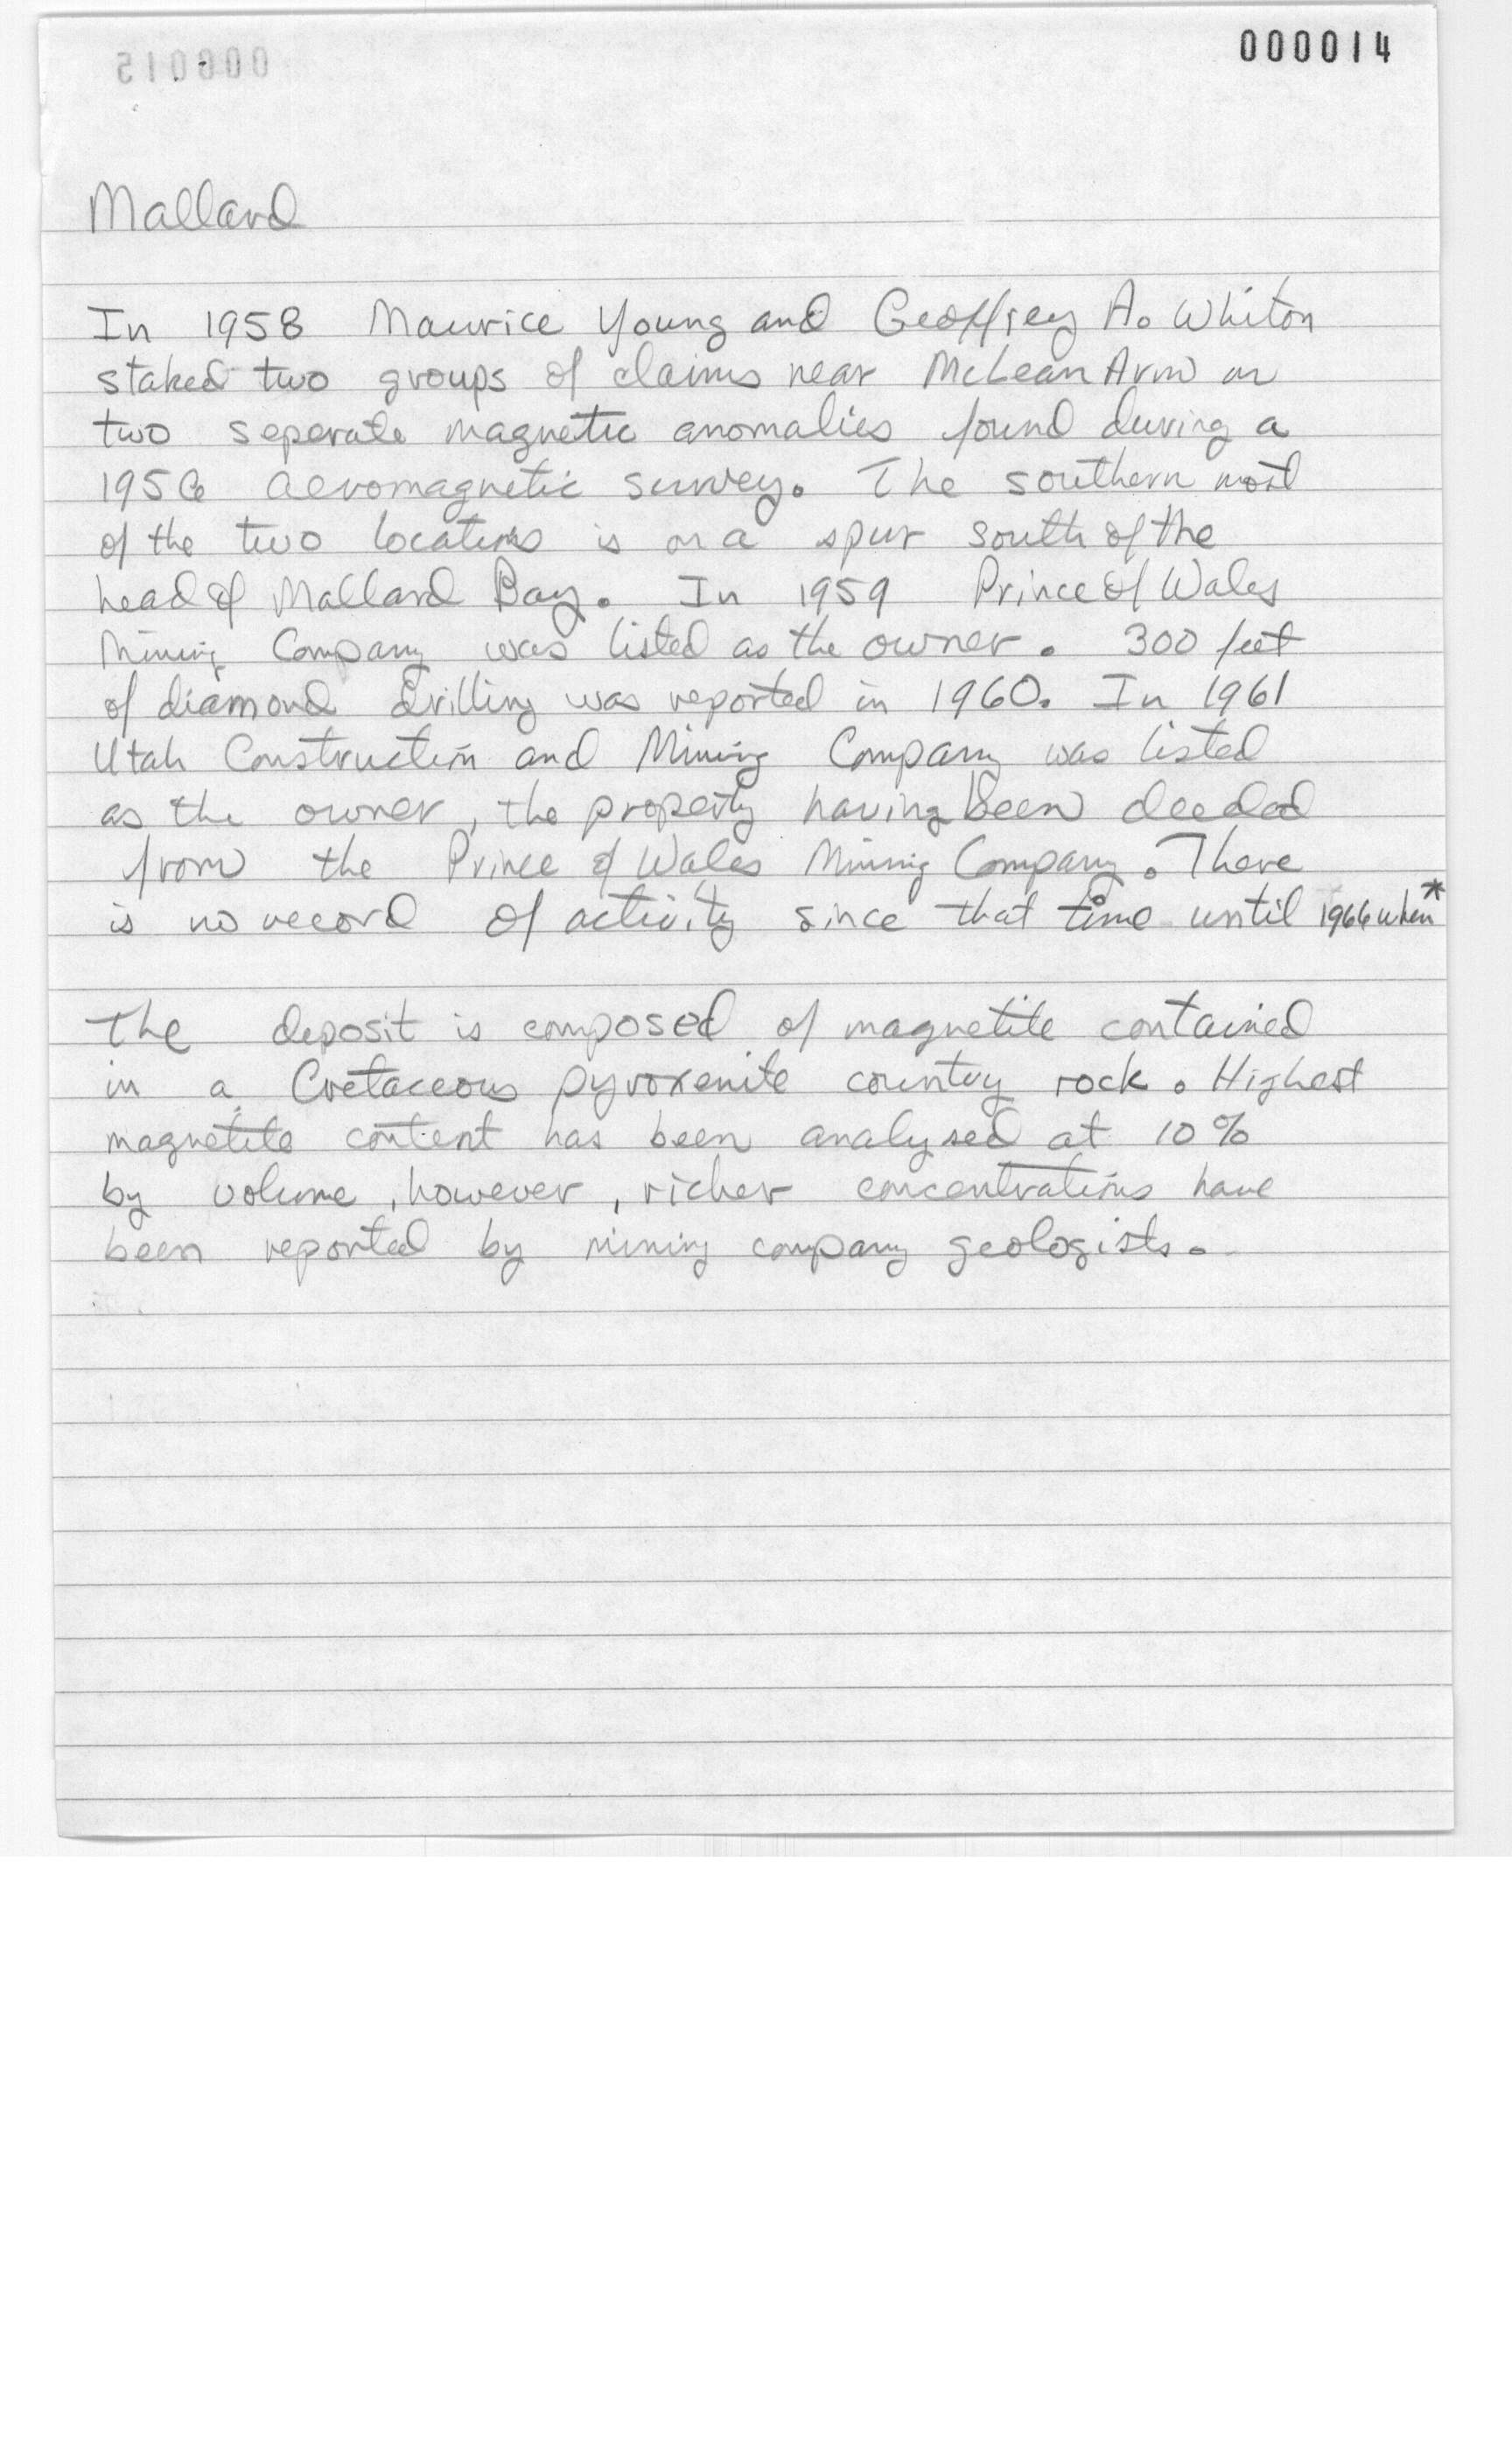 000014
000015
Mallard
In 1958 Maurice Young and Geoffrey A. Whiton
staked two groups of claims near McLean Arm on
two seperate magnetic anomalies found during a
1956 aeromagnetic survey. The southern most
of the two locations is on a spur south of the
head of Mallard Bay. In 1959 Prince of Wales
Mining Company was listed as the owner. 300 feet
of diamond drilling was reported in 1960. In 1961
Utah Construction and Mining Company was listed
as the owner, the property having been deeded
from the Prince of Wales Mining Company. There
is no record of activity since that time until 1966 when*
The deposit is composed of magnetite contained
in a Cretaceous pyroxenite country rock. Highest
magnetite content has been analysed at 10%
by volume, however, richer concentrations have
been reported by mining company geologists.